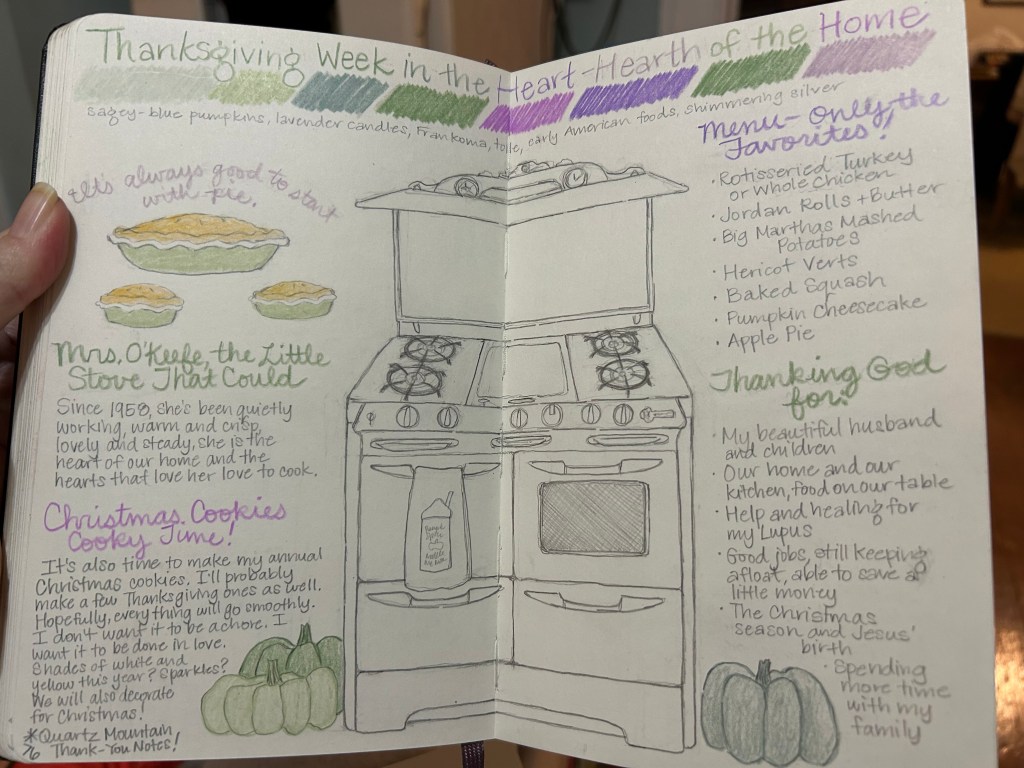 Thanksgiving Week in the Heart-Hearth of the Home
sagey-blue pumpkins, lavender candles, Frankoma, toile, early American foods, shimmering silver
It's always good to start
with pie.
Mrs. O'Keefe, the Little
Stove That Could
Since 1958, she's been quietly
working, warm and crisp,
lovely and steady, she is the
heart of our home and the
hearts that love her love to cook.
Christmas Cookies
Cooky Time!
It's also time to make my annual
Christmas cookies. I'll probably
make a few Thanksgiving ones as well.
Hopefully, everything will go smoothly.
I don't want it to be a chore. I
want it to be done in love.
Shades of white and
yellow this year? Sparkles?
We will also decorate
for Christmas!
*Quartz Mountain
Thank-You Notes!
Menu- Only the
Favorites!
· Rotisseried Turkey
or Whole Chicken
· Jordan Rolls + Butter
· Big Marthas Mashed
Potatoes
· Hericot Verts
· Baked Squash
· Pumpkin Cheesecake
· Apple Pie
Thanking God
for:
· My beautiful husband
and children
· Our home and our
kitchen, food on our table
· Help and healing for
my Lupus
· Good jobs, still keeping
afloat, able to save a
little money
· The Christmas
season and Jesus'
birth
· Spending
more time
with my
family